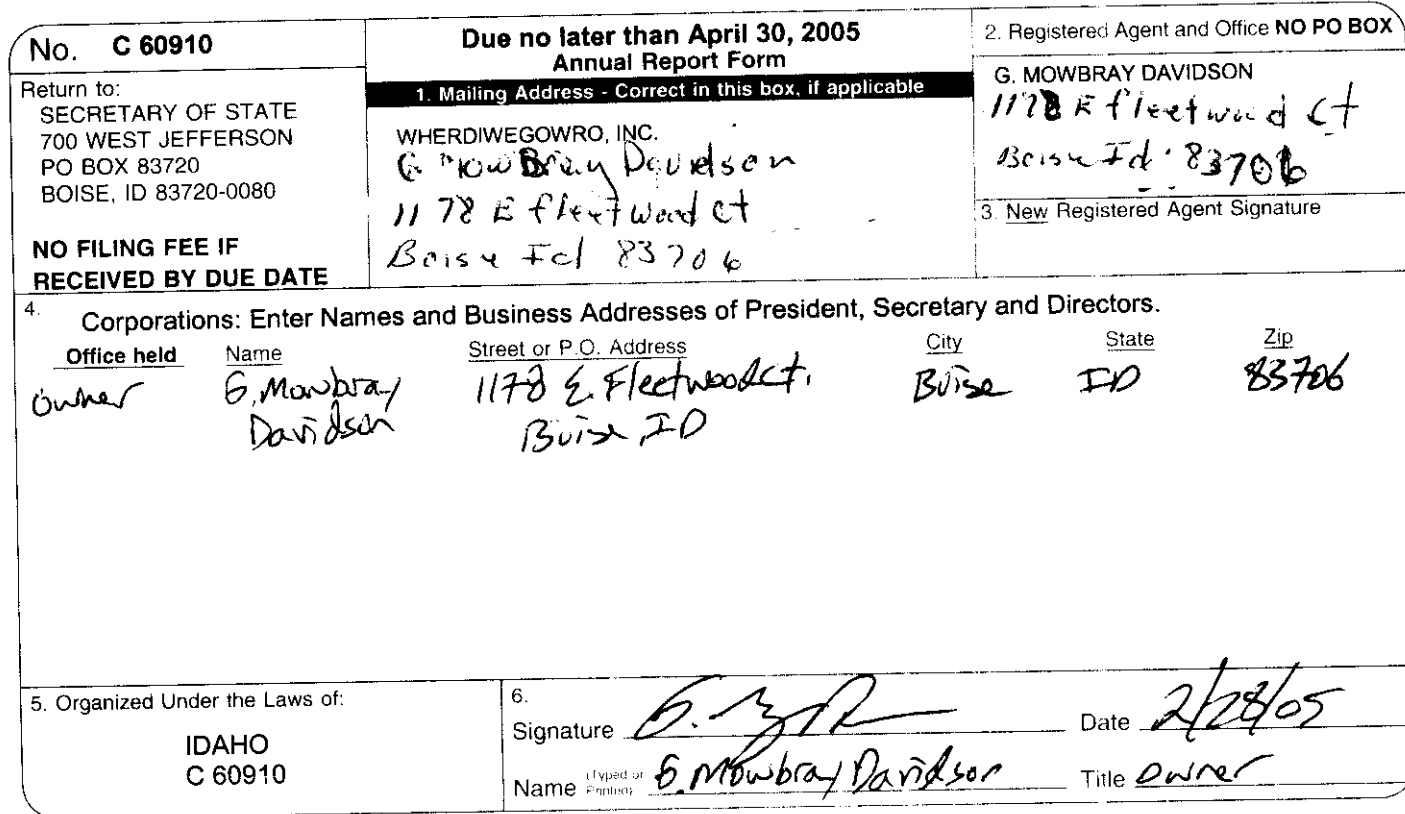 No. C 60910
Return to:
SECRETARY OF STATE
700 WEST JEFFERSON
PO BOX 83720
BOISE, ID 83720-0080
NO FILING FEE IF
RECEIVED BY DUE DATE
Due no later than April 30, 2005
Annual Report Form
1. Mailing Address - Correct in this box, if applicable
WHERDIWEGOWRO, INC.
G MowBray Davidson
1178 E fleetwood ct
Boise Id 83706
2. Registered Agent and Office NO PO BOX
G. MOWBRAY DAVIDSON
1178 E fleetwood Ct
Boise Id. 83706
3. New Registered Agent Signature
4. Corporations: Enter Names and Business Addresses of President, Secretary and Directors.
Office held Name Street or P.O. Address City State Zip
Owner G. Mowbray 1178 E. Fleetwood ct. Boise ID 83706
Davidson Boise, ID
5. Organized Under the Laws of:
IDAHO
C 60910
6.
Signature Date 2/28/05
Name (Typed or Printed) G. Mowbray Davidson Title Owner